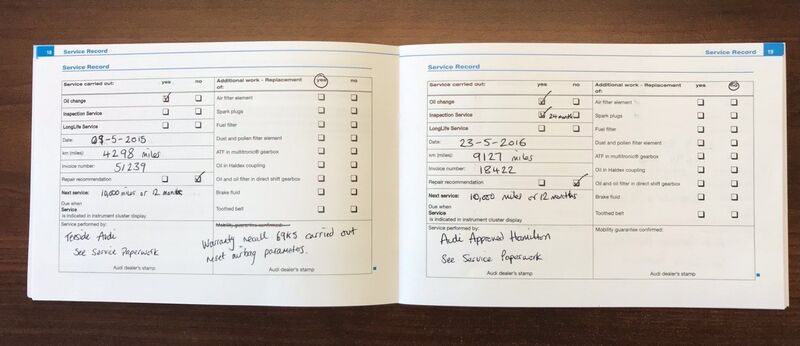 18 Service Record
Service Record
Service carried out: yes no
Additional work - Replacement of: yes no
Oil change
Inspection Service
LongLife Service
Date: -5-2015
km (miles): 4298 miles
Invoice number: 51239
Repair recommendation
Next service: 10,000 miles or 12 months
Due when
Service
is indicated in instrument cluster display
Air filter element
Spark plugs
Fuel filter
Dust and pollen filter element
ATF in multitronic® gearbox
Oil in Haldex coupling
Oil and oil filter in direct shift gearbox
Brake fluid
Toothed belt
Service performed by:
Teeside Audi
See Service Paperwork
Audi dealer's stamp
Mobility guarantee confirmed:
Warranty recall 69K5 carried out
reset airbag parameters.
Audi dealer's stamp
Service Record 19
Service Record
Service carried out: yes no
Additional work - Replacement of: yes no
Oil change
Inspection Service 24 months
LongLife Service
Date: 23-5-2016
km (miles): 9127 miles
Invoice number: 18422
Repair recommendation
Next service: 10,000 miles or 12 months
Due when
Service
is indicated in instrument cluster display
Air filter element
Spark plugs
Fuel filter
Dust and pollen filter element
ATF in multitronic® gearbox
Oil in Haldex coupling
Oil and oil filter in direct shift gearbox
Brake fluid
Toothed belt
Service performed by:
Audi Approved Hamilton
See Service Paperwork
Audi dealer's stamp
Mobility guarantee confirmed:
Audi dealer's stamp